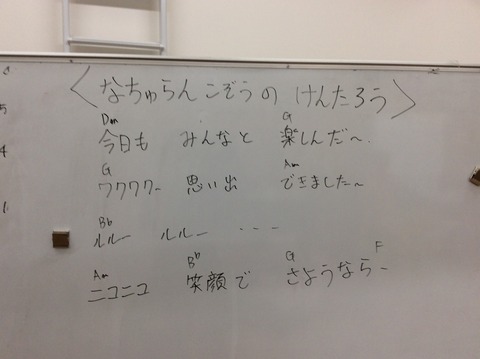 ＜なちゅらんこぞうの けんたろう＞
Dm G
今日も みんなと 楽しんだ〜
G Am
ワクワク〜 思い出 できました〜
Bb
ルルー ルルー ・・・
Am Bb G F
ニコニコ 笑顔で さようなら〜
5
4